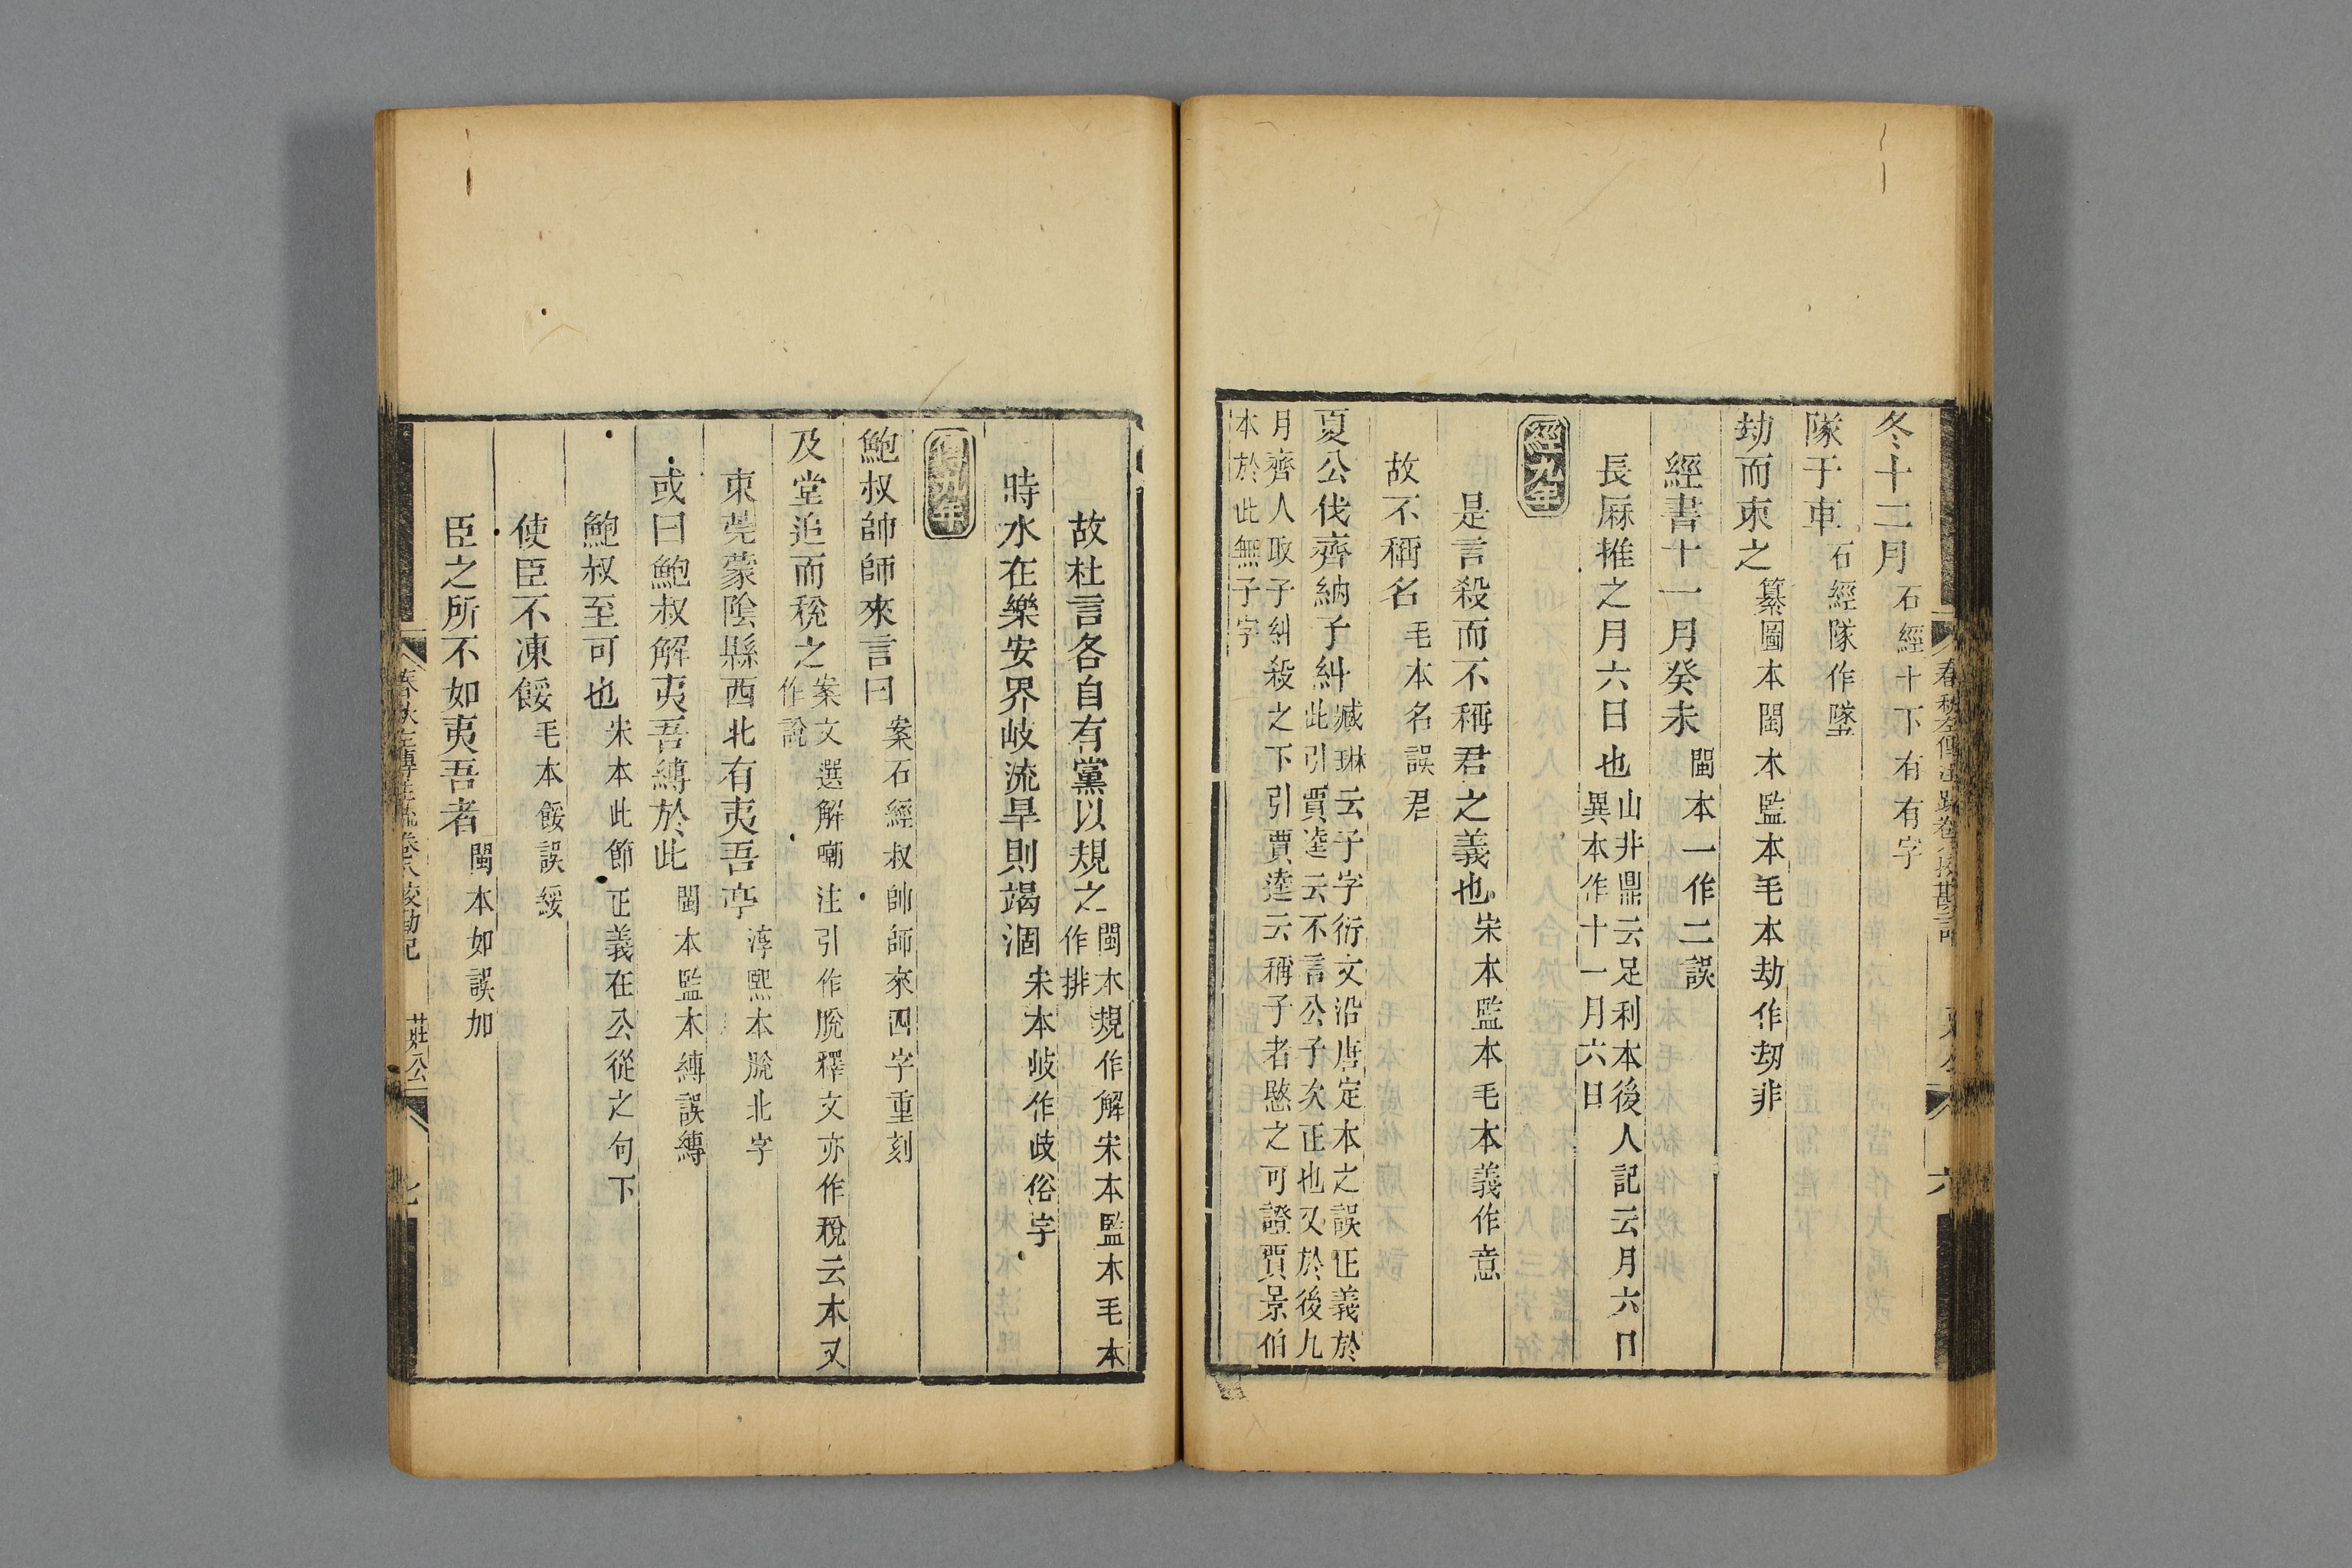 冬十二月石經十下有有字
隊于車石經隊作墜
劫而束之纂圖本閩本監本毛本劫作刼非
經書十一月癸未閩本一作二誤
長厤推之月六日也山井鼎云足利本後人記云月六日
異本作十一月六日
經九年
是言殺而不稱君之義也宋本監本毛本義作意
故不稱名毛本名誤君
夏公伐齊納子糾臧琳云子字衍文沿唐定本之誤正義於
此引賈逵云不言公子次正也又於後九
月齊人取子糾殺之下引賈逵云稱子者愍之可證賈景伯
本於此無子字
春秋左傳注疏卷八校勘記
六
故杜言各自有黨以規之閩本規作解宋本監本毛本
作排
時水在樂安界岐流旱則竭涸宋本岐作歧俗字
傳九年
鮑叔帥師來言曰案石經叔帥師來四字重刻
及堂追而稅之案文選解嘲注引作脫釋文亦作稅云本又
作說
東莞蒙陰縣西北有夷吾亭淳熙本脫北字
或曰鮑叔解夷吾縛於此閩本監本縛誤縳
鮑叔至可也宋本此節正義在公從之句下
使臣不凍餒毛本餒誤綏
臣之所不如夷吾者閩本如誤加
春秋左傳注疏卷八校勘記
莊公
七